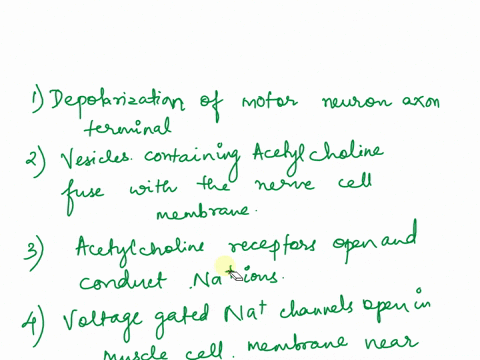 1) Depolarization of motor neuron axon
terminal
2) Vesicles containing Acetylcholine
fuse with the nerve cell
membrane.
3) Acetylcholine receptors open and
conduct Na⁺ ions.
4) Voltage gated Na⁺ channels open in
muscle cell membrane near